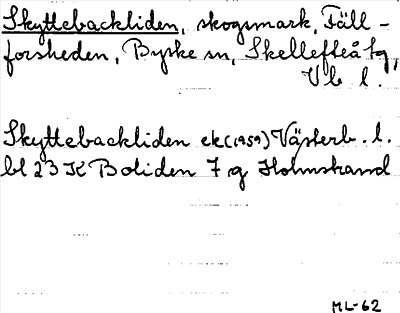 Skyttebackliden, skogsmark, Fäll-
forsheden, Byske sn, Skellefteå tg,
Vb l.
Skyttebackliden ek(1959) Västerb. l.
bl 23 K Boliden 7 g Holmstrand
ML-62